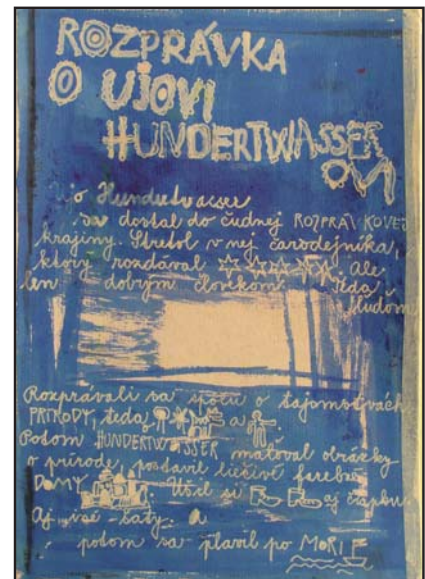 ROZPRÁVKA
O UJOVI
HUNDERTWASSER
OVI
o Hundertwasser
sa dostal do čudnej ROZPRÁVKOVEJ
krajiny. Stretol v nej čarodejníka,
ktorý rozdával Ale
len dobrým človekom teda
ľuďom
Rozprávali sa spolu o tajomstvách
PRÍRODY, teda a
Potom HUNDERTWASSER maľoval obrázky
o prírode, postavil liečivé farebné
DOMY Ušil si aj čapku
Aj šaty a
potom sa plavil po MORI